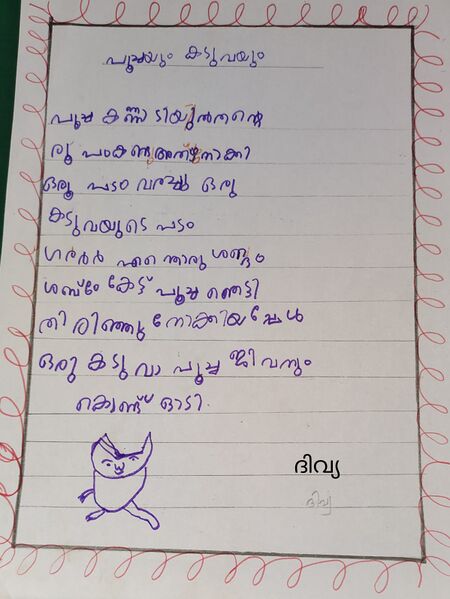 പൂച്ചയും കടുവയും
പൂച്ച കണ്ണാടിയുൽതന്റെ
രൂപംകണ്ടുഅന്തിച്ചുനോക്കി
ഒരൂ പടം വരച്ചു ഒരു
കടുവയുടെ പടം
ഗരർർർ എന്തൊരു ശബ്ദം
ശബ്ദം കേട്ട് പൂച്ച ഞെട്ടി
തിരിഞ്ഞു നോക്കിയപ്പേൾ
ഒരു കടുവാ പൂച്ച ജീവനും
കൊണ്ട് ഓടി.
ദിവ്യ
ദിവ്യ